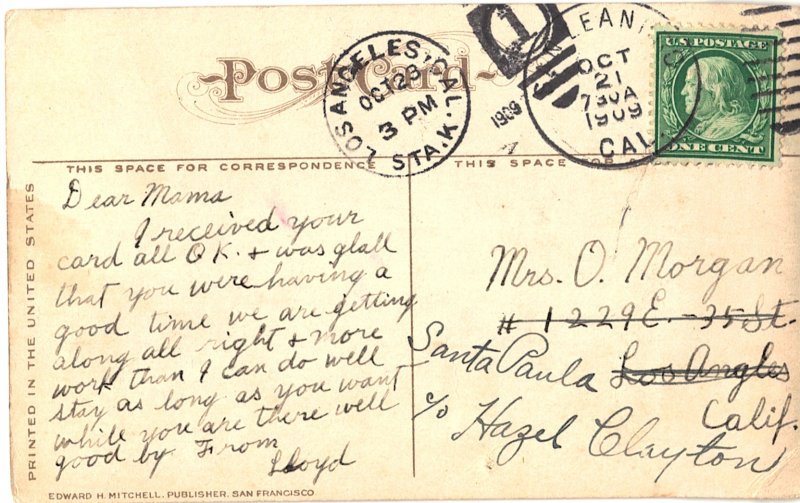 Post Card
LOS ANGELES, CAL.
OCT 23
3 PM
STA. K.
1909
1
OCT
21
730A
1909
CAL.
U.S. POSTAGE
ONE CENT
THIS SPACE FOR CORRESPONDENCE
THIS SPACE FOR
PRINTED IN THE UNITED STATES
Dear Mama
I received your
card all O.K. + was glall
that you were having a
good time we are getting
along all right + more
work than I can do well
stay as long as you want
while you are there well
good by From
Lloyd
Mrs. O. Morgan
# 1229 E. - 35 St.
Santa Paula Los Angles
Calif.
c/o Hazel Clayton
EDWARD H. MITCHELL, PUBLISHER, SAN FRANCISCO